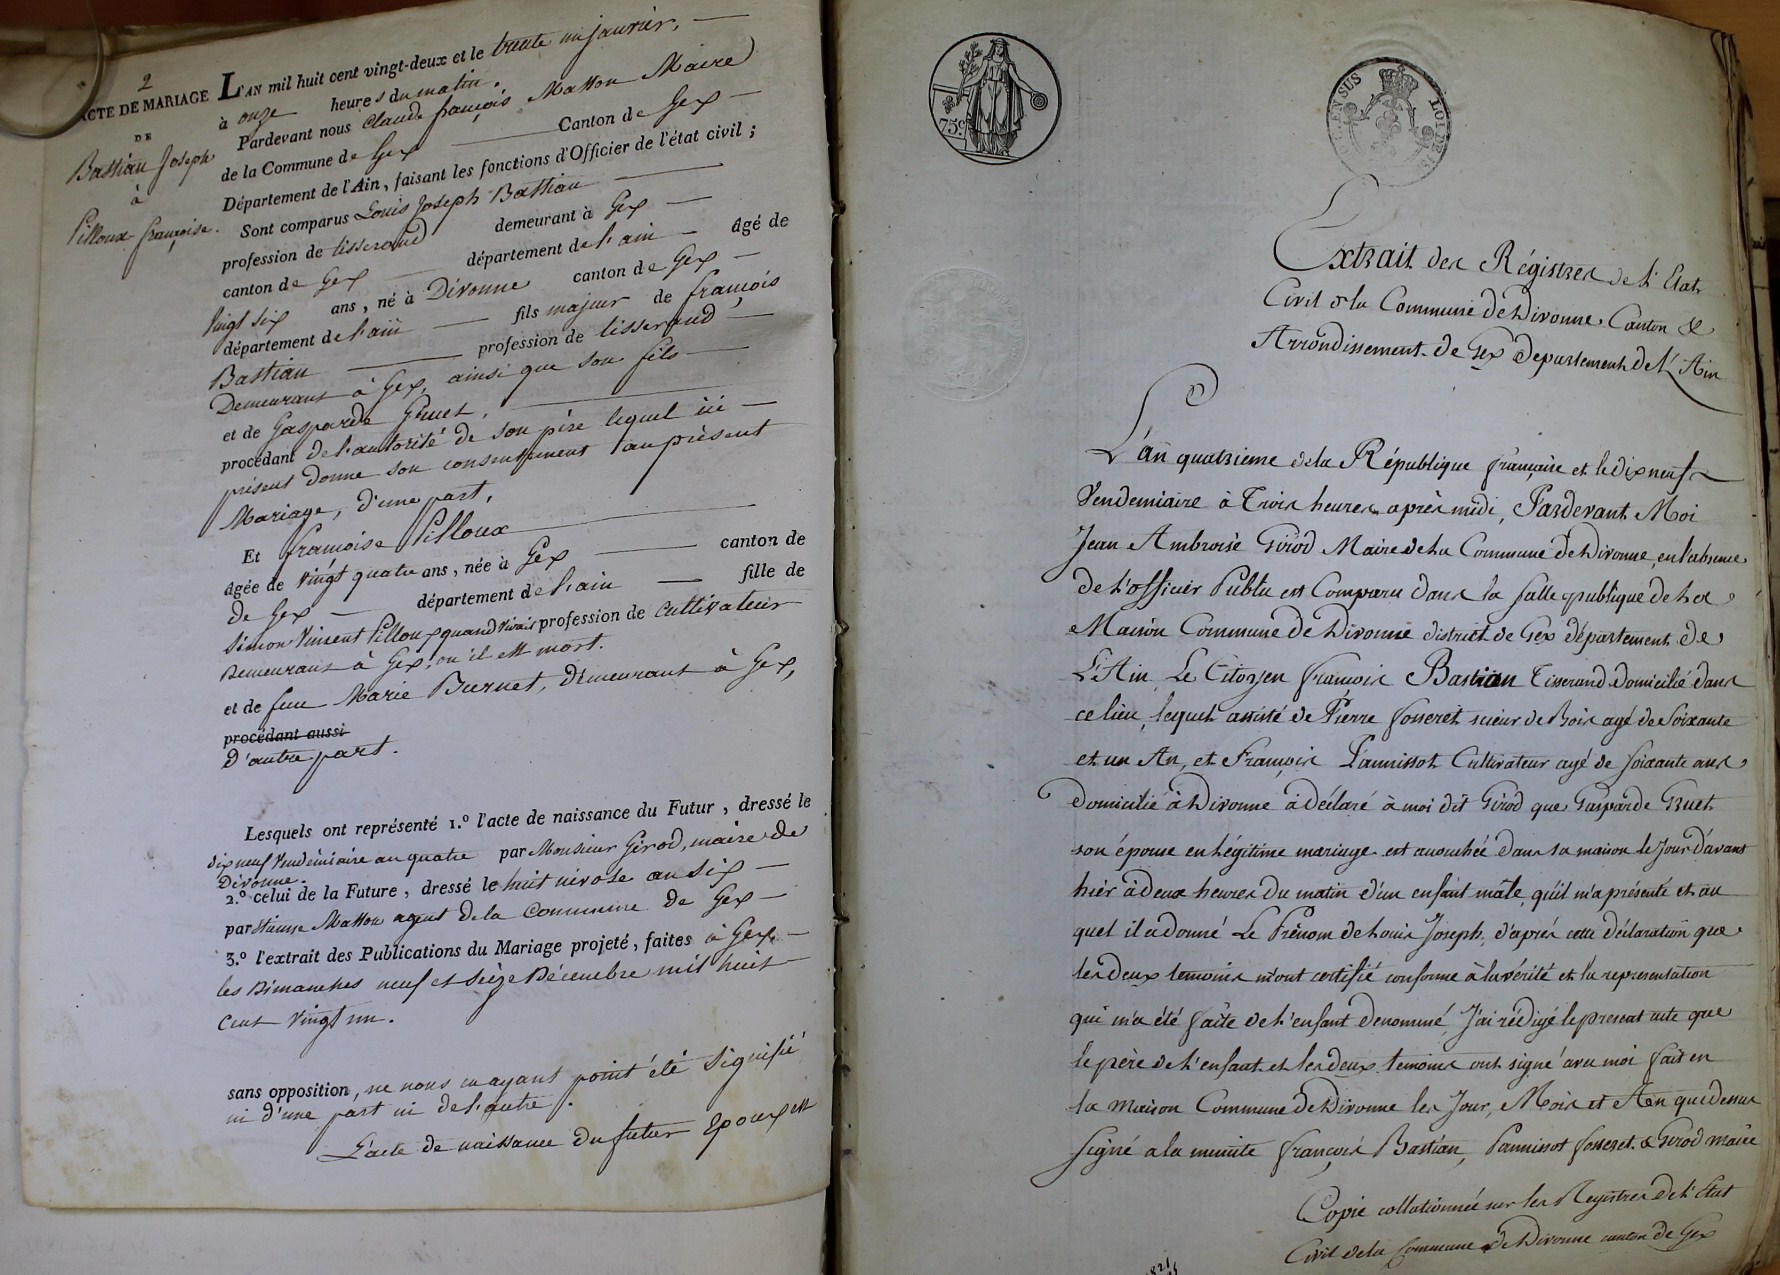 2
ACTE DE MARIAGE
DE
Bastian Joseph
à
Pilloux françoise.
L'AN mil huit cent vingt-deux et le trente un janvier,
à onze heures du matin.
Pardevant nous Claude françois Masson Maire
de la Commune de Gex Canton de Gex
Département de l'Ain, faisant les fonctions d'Officier de l'état civil ;
Sont comparus Louis Joseph Bastian
profession de tisserand demeurant à Gex
canton de Gex département de l'ain âgé de
vingt six ans, né à Divonne canton de Gex
département de l'ain fils majeur de françois
Bastian profession de tisserand
Demeurant à Gex, ainsi que son fils
et de Gasparde Gruet,
procédant de l'autorité de son père lequel ici
présent donne son consentement au présent
Mariage, d'une part,
Et françoise Pilloux
âgée de vingt quatre ans, née à Gex canton de
de Gex département de l'ain fille de
Simon Vincent Pilloux quand vivait profession de cultivateur
Demeurant à Gex, ou il est mort.
et de feue Marie Burnet, demeurant à Gex,
procédant aussi
d'autre part.
Lesquels ont représenté 1.º l'acte de naissance du Futur, dressé le
dix neuf Vendémiaire an quatre par Monsieur Girod, maire de
Divonne.
2.º celui de la Future, dressé le huit nivose an six
par Etienne Masson agent de la Commune de Gex
3.º l'extrait des Publications du Mariage projeté, faites à Gex
les Dimanches neuf et seize Décembre mil huit
cent vingt un.
sans opposition, ne nous en ayant point été signifié
ni d'une part ni de l'autre.
L'acte de naissance du futur Epoux est
75c
Extrait des Régistres de l'Etat
Civil de la Commune de Divonne Canton &
Arrondissement de Gex Departement de l'Ain
L'an quatrieme de la République française et le dix neuf
Vendemiaire à Trois heures après midi, Pardevant Moi
Jean Ambroise Girod Maire de la Commune de Divonne, en l'absence
de l'officier Public est Comparu dans la salle publique de la
Maison Commune de Divonne district de Gex département de
L'Ain Le Citoyen françois Bastian Tisserand domicilié dans
ce lieu, lequel assisté de Pierre fosseret scieur de Bois agé de Soixante
et un An, et François Pannissot Cultivateur agé de soixante ans
domicilié à Divonne à déclaré à moi dit Girod que Gasparde Gruet
son épouse en légitime mariage est accouchée dans sa maison le Jour d'avant
hièr à deux heures du matin d'un enfant mâle, qu'il m'a présenté et au
quel il a donné Le Prénom de Louis Joseph, d'après cette déclaration que
les deux temoins m'ont certifié conforme à la vérité et la representation
qui m'a été faite de l'enfant denommé J'ai rédigé le present acte que
le père de l'enfant et les deux temoins ont signé avec moi fait en
la maison Commune de Divonne les Jour, Mois et An que dessus
signé a la minute françois Bastian, Pannissot fosseret & Girod maire
Copie collationnée sur les Registres de l'Etat
Civil de la Commune de Divonne canton de Gex